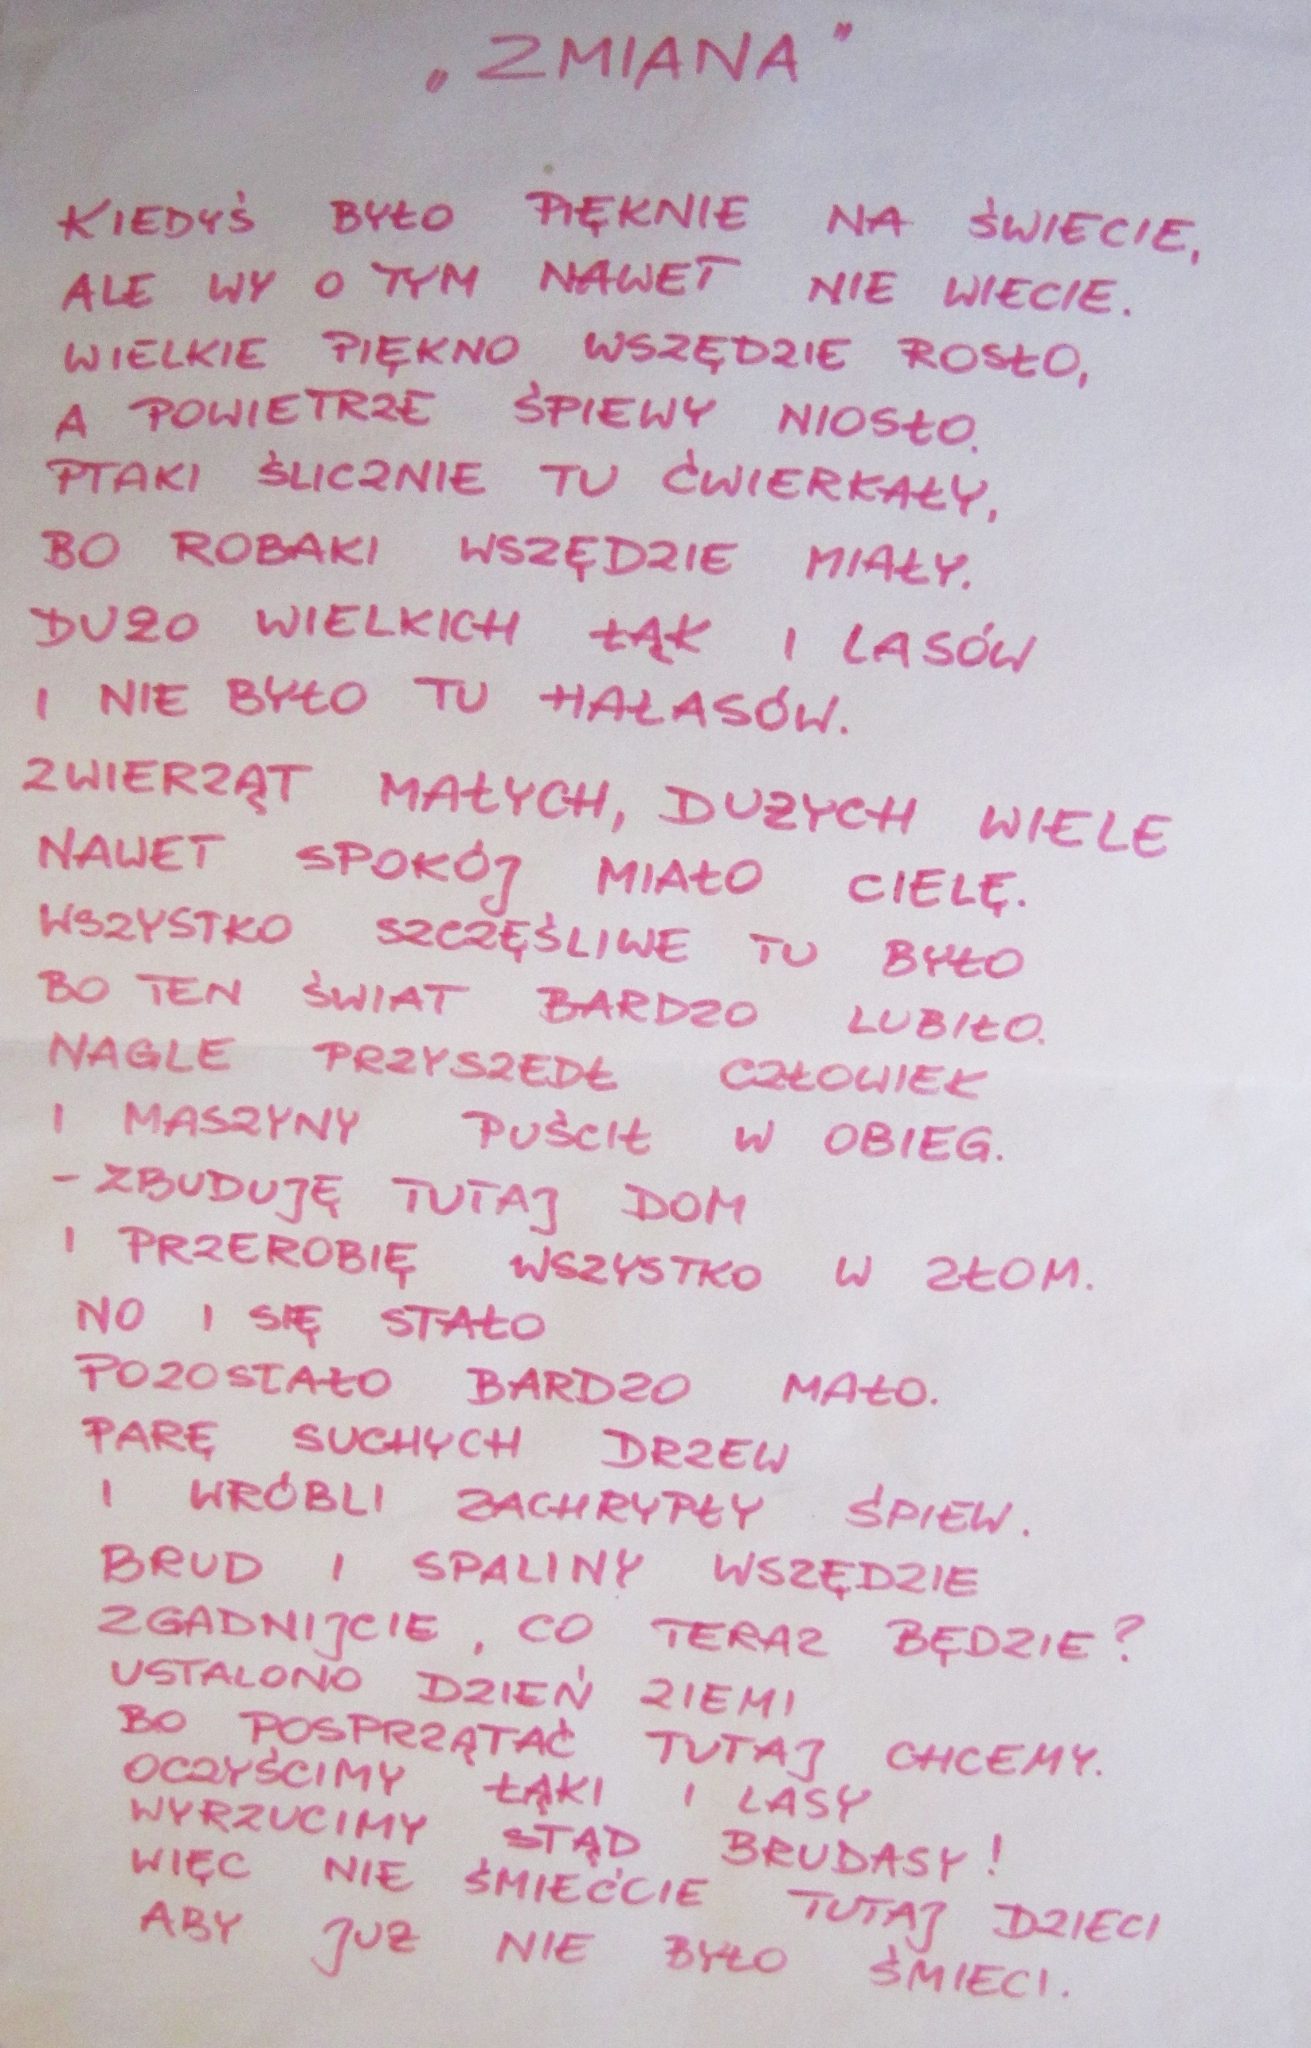 „ZMIANA”
KIEDYŚ BYŁO PIĘKNIE NA ŚWIECIE,
ALE WY O TYM NAWET NIE WIECIE.
WIELKIE PIĘKNO WSZĘDZIE ROSŁO,
A POWIETRZE ŚPIEWY NIOSŁO.
PTAKI ŚLICZNIE TU ĆWIERKAŁY,
BO ROBAKI WSZĘDZIE MIAŁY.
DUŻO WIELKICH ŁĄK I LASÓW
I NIE BYŁO TU HAŁASÓW.
ZWIERZĄT MAŁYCH, DUŻYCH WIELE
NAWET SPOKÓJ MIAŁO CIELĘ.
WSZYSTKO SZCZĘŚLIWE TU BYŁO
BO TEN ŚWIAT BARDZO LUBIŁO.
NAGLE PRZYSZEDŁ CZŁOWIEK
I MASZYNY PUŚCIŁ W OBIEG.
- ZBUDUJĘ TUTAJ DOM
I PRZEROBIĘ WSZYSTKO W ZŁOM.
NO I SIĘ STAŁO
POZOSTAŁO BARDZO MAŁO.
PARĘ SUCHYCH DRZEW
I WRÓBLI ZACHRYPŁY ŚPIEW.
BRUD I SPALINY WSZĘDZIE
ZGADNIJCIE, CO TERAZ BĘDZIE?
USTALONO DZIEŃ ZIEMI
BO POSPRZĄTAĆ TUTAJ CHCEMY.
OCZYŚCIMY ŁĄKI I LASY
WYRZUCIMY STĄD BRUDASY!
WIĘC NIE ŚMIEĆCIE TUTAJ DZIECI
ABY JUŻ NIE BYŁO ŚMIECI.